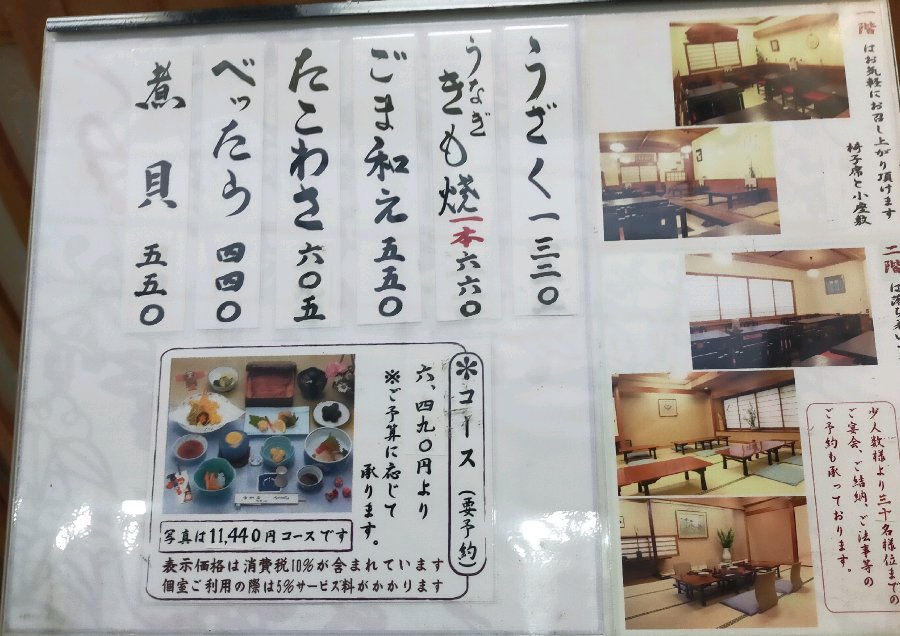 うざく 一三二〇
うなぎきも焼 一本 六六〇
ごま和え 五五〇
たこわさ 六〇五
べったら 四四〇
煮貝 五五〇
＊コース(要予約)
六、四九〇円より
※ご予算に応じて
承ります。
写真は11,440円コースです
表示価格は消費税10%が含まれています
個室ご利用の際は5%サービス料がかかります
一階はお気軽にお召し上がり頂けます
椅子席と小座敷
二階は落ち着い
少人数様より三十名様位までの
ご宴会、ご結納、ご法事等の
ご予約も承っております。